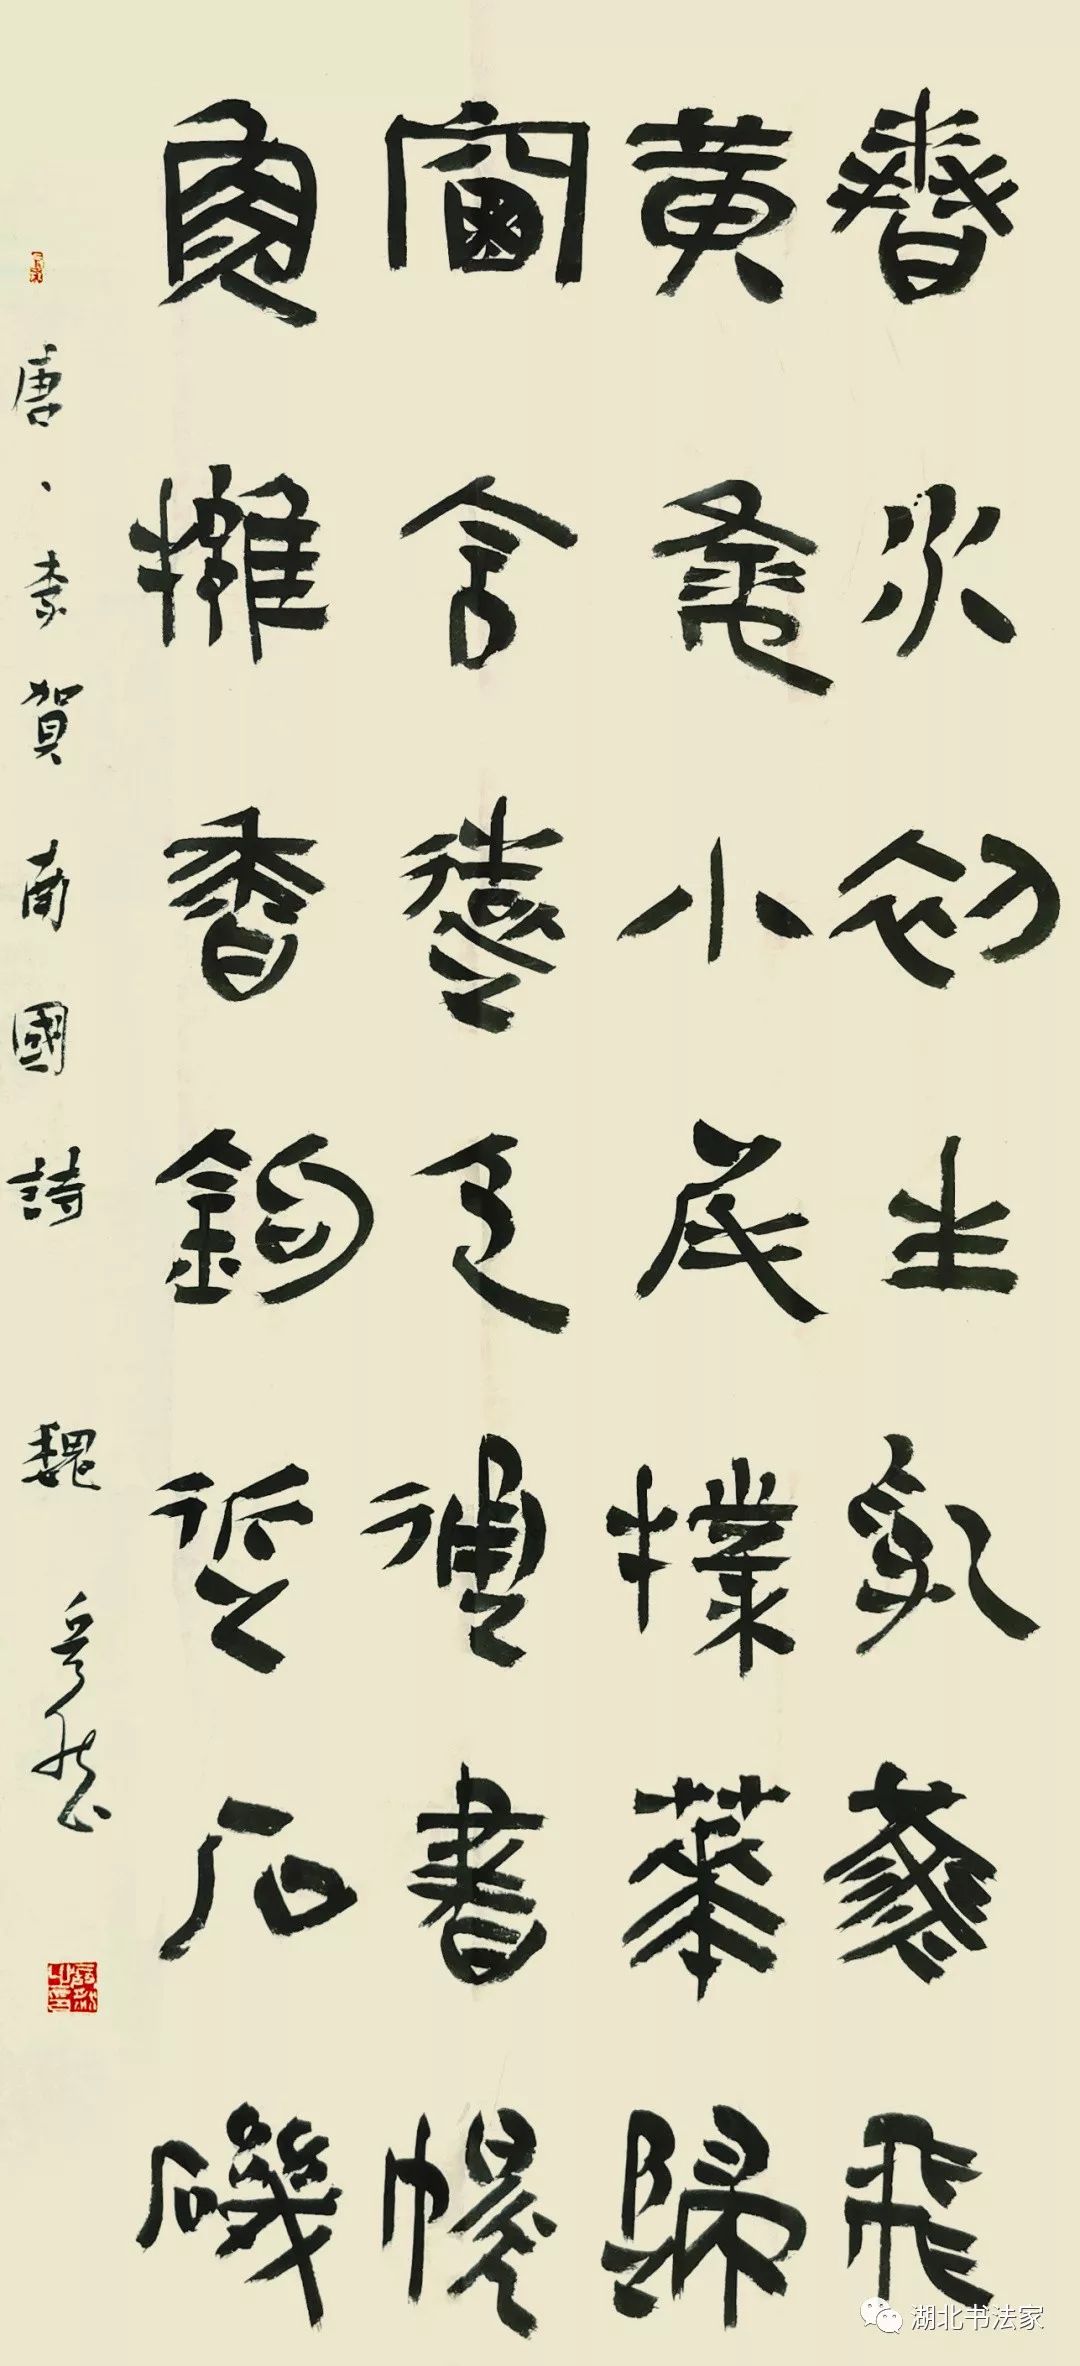 春水初生乳燕飛
黃蜂小尾撲華歸
窗含遠色通書幌
魚擁香鉤近石磯
唐、李賀南國詩 魏
湖北书法家